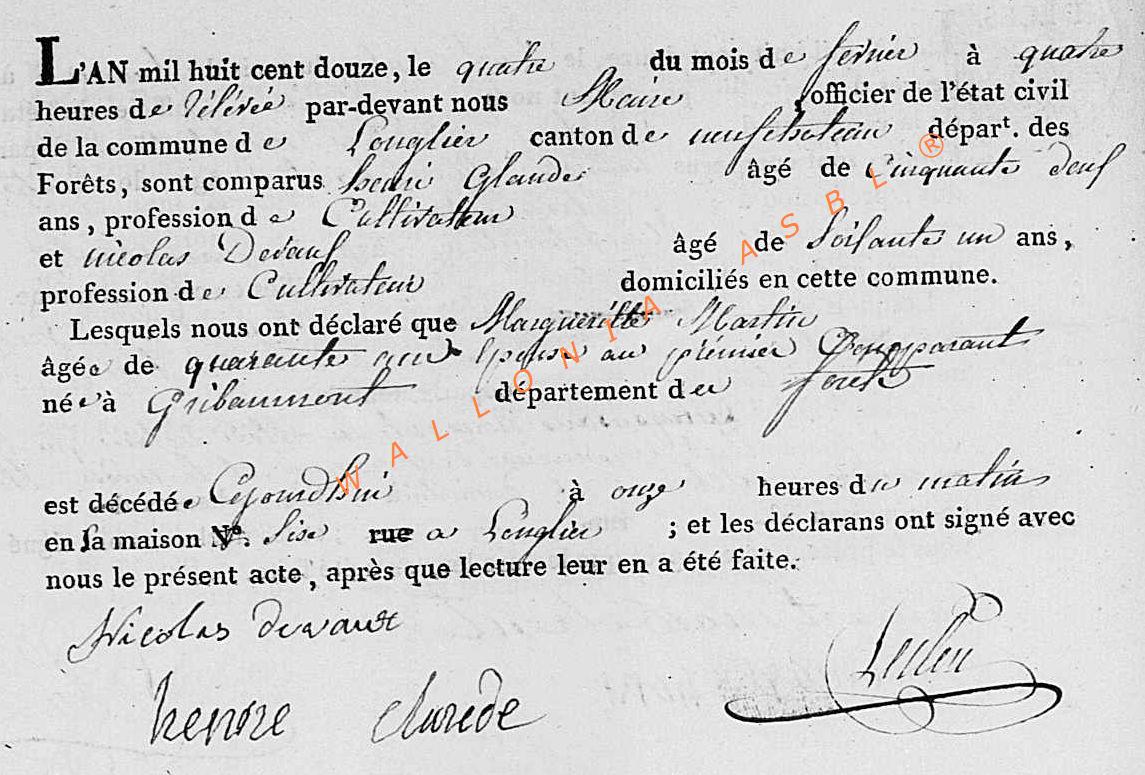 L'AN mil huit cent douze, le quatre du mois de fevrier à quatre
heures de relevée par-devant nous Maire, officier de l'état civil
de la commune de Longlier canton de neufchateau départ. des
Forêts, sont comparus henri Glaude âgé de Cinquante deux
ans, profession de Cultivateur
et nicolas Devaux âgé de Soisante un ans,
profession de Cultivateur domiciliés en cette commune.
Lesquels nous ont déclaré que Margueritte Martin
âgée de quarante epouse au premier Comparant
née à Gribaumont département des forets
est décédée Cejourdhui à onze heures du matin
en sa maison N°. Sise rue a Longlier ; et les déclarans ont signé avec
nous le présent acte, après que lecture leur en a été faite.
Nicolas devaux
henrre
WALLONIA ASBL ®